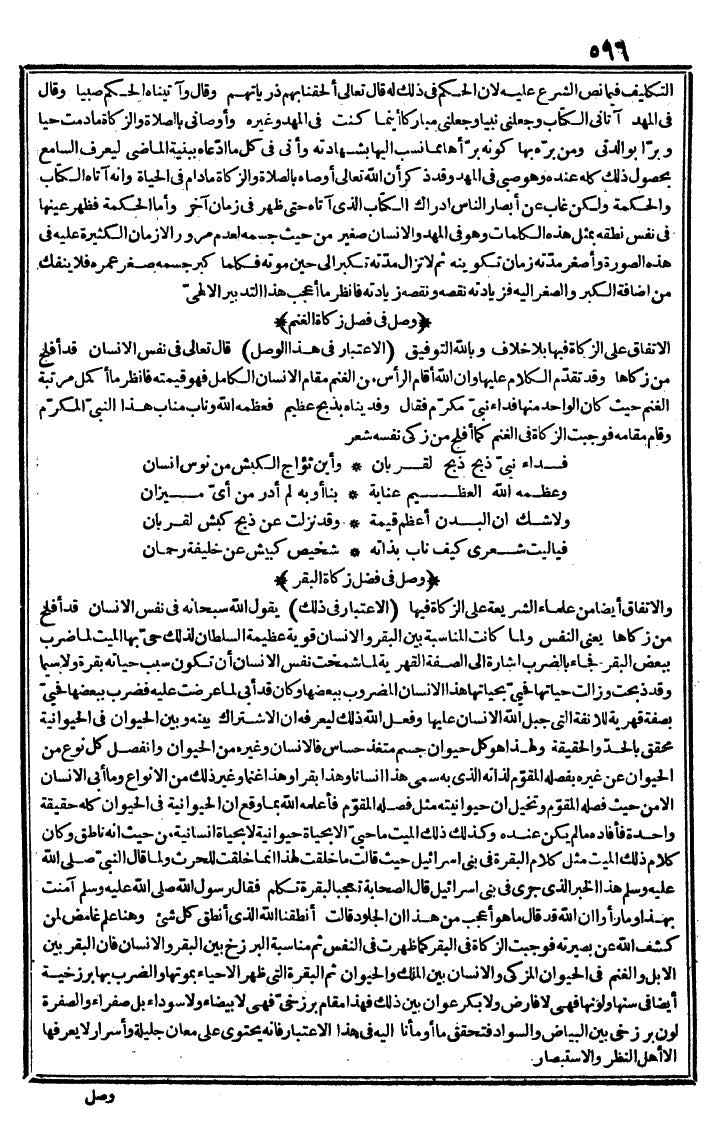 ٥٩٦
التكليف فيما نص الشرع عليه لان الحكم فى ذلك له قال تعالى ألحقنا بهم ذرياتهم وقال وآتيناه الحكم صبيا وقال
فى المهد آتانى الكتاب وجعلنى نبيا وجعلنى مباركا أينما كنت فى المهد وغيره وأوصانى بالصلاة والزكاة مادمت حيا
وبرّا بوالدتى ومن برّه بها كونه برّأها مما نسب اليها بشهادته وأتى فى كل ما ادّعاه ببنية الماضى ليعرف السامع
بحصول ذلك كله عنده وهو صبى فى المهد وقد ذكر أن الله تعالى أوصاه بالصلاة والزكاة مادام فى الحياة وانه آتاه الكتاب
والحكمة ولكن غاب عن أبصار الناس ادراك الكتاب الذى آتاه حتى ظهر فى زمان آخر وأما الحكمة فظهر عينها
فى نفس نطقه بمثل هذه الكلمات وهو فى المهد والانسان صغير من حيث جسمه لعدم مرور الازمان الكثيرة عليه فى
هذه الصورة وأصغر مدّته زمان تكوينه ثم لا تزال مدّته تكبر الى حين موته فكلما كبر جسمه صغر عمره فلا ينفك
من اضافة الكبر والصغر اليه فزيادته نقصه ونقصه زيادته فانظر ما أعجب هذا التدبير الالهىّ
﴿وصل فى فصل زكاة الغنم﴾
الاتفاق على الزكاة فيها بلا خلاف وبالله التوفيق (الاعتبار فى هذا الوصل) قال تعالى فى نفس الانسان قد أفلح
من زكاها وقد تقدّم الكلام عليها وان الله أقام الرأس من الغنم مقام الانسان الكامل فهو قيمته فانظر ما أكمل مرتبة
الغنم حيث كان الواحد منها فداء نبىّ مكرّم فقال وفديناه بذبح عظيم فعظمه الله وناب مناب هذا النبىّ المكرّم
وقام مقامه فوجبت الزكاة فى الغنم كما أفلح من زكى نفسه شعر
فداء نبىّ ذبح ذبح لقربان * وأين ثؤاج الكبش من نوس انسان
وعظمه الله العظيم عناية * بنا أو به لم أدر من أىّ ميزان
ولا شك ان البدن أعظم قيمة * وقد نزلت عن ذبح كبش لقربان
فياليت شعرى كيف ناب بذاته * شخيص كبيش عن خليفة رحمان
﴿وصل فى فضل زكاة البقر﴾
والاتفاق أيضا من علماء الشريعة على الزكاة فيها (الاعتبار فى ذلك) يقول الله سبحانه فى نفس الانسان قد أفلح
من زكاها يعنى النفس ولما كانت المناسبة بين البقر والانسان قوية عظيمة السلطان لذلك حىّ بها الميت لما ضرب
ببعض البقر فجاء بالضرب اشارة الى الصفة القهرية لما شمخت نفس الانسان أن تكون سبب حياته بقرة ولا سيما
وقد ذبحت وزالت حياتها فحيىّ بحياتها هذا الانسان المضروب ببعضها وكان قد أبى لما عرضت عليه فضرب ببعضها فحيىّ
بصفة قهرية للانفة التى جبل الله الانسان عليها وفعل الله ذلك ليعرفه ان الاشتراك بينه وبين الحيوان فى الحيوانية
محقق بالحدّ والحقيقة ولهذا هو كل حيوان جسم متغذ حساس فالانسان وغيره من الحيوان وانفصل كل نوع من
الحيوان عن غيره بفصله المقوّم لذاته الذى به سمى هذا انسانا وهذا بقرا وهذا غنما وغير ذلك من الانواع وما أبى الانسان
الا من حيث فصله المقوّم وتخيل ان حيوانيته مثل فصله المقوّم فأعلمه الله بما وقع ان الحيوانية فى الحيوان كله حقيقة
واحدة فأفاده ما لم يكن عنده وكذلك ذلك الميت ما حيىّ الا بحياة حيوانية لا بحياة انسانية من حيث انه ناطق وكان
كلام ذلك الميت مثل كلام البقرة فى بنى اسرائيل حيث قالت ما خلقت لهذا انما خلقت للحرث ولما قال النبىّ صلى الله
عليه وسلم هذا الخبر الذى جرى فى بنى اسرائيل قال الصحابة تعجبا أبقرة تكلم فقال رسول الله صلى الله عليه وسلم آمنت
بهذا وما رأوا ان الله قد قال ما هو أعجب من هذا ان الجلود قالت أنطقنا الله الذى أنطق كل شئ وهنا علم غامض لمن
كشف الله عن بصيرته فوجبت الزكاة فى البقر كما ظهرت فى النفس ثم مناسبة البرزخ بين البقر والانسان فان البقر بين
الابل والغنم فى الحيوان المزكى والانسان بين الملك والحيوان ثم البقرة التى ظهر الاحياء بموتها والضرب بها برزخية
أيضا فى سنها ولونها فهى لا فارض ولا بكر عوان بين ذلك فهذا مقام برزخىّ فهى لا بيضاء ولا سوداء بل صفراء والصفرة
لون برزخى بين البياض والسواد فتحقق ما أومأنا اليه فى هذا الاعتبار فانه يحتوى على معان جليلة وأسرار لا يعرفها
الا أهل النظر والاستبصار
وصل